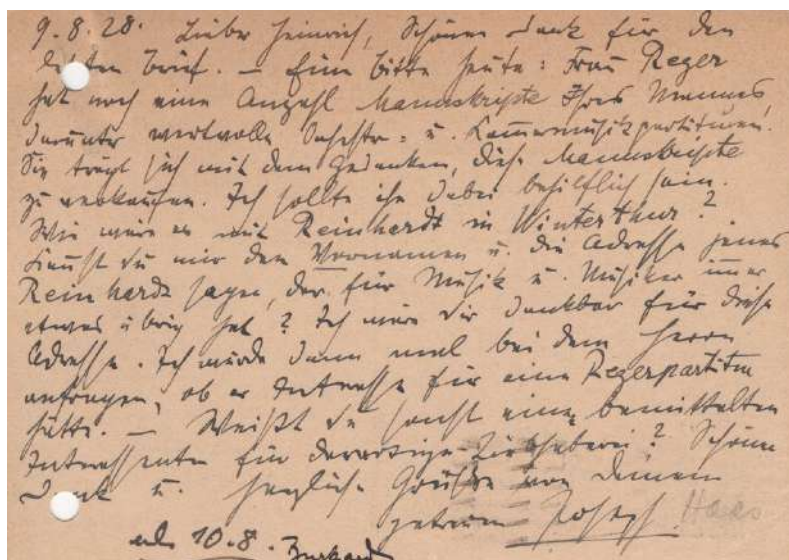 9.8.28. Lieber Heinrich, Schönen Dank für den
letzten Brief. – Eine Bitte heute: Frau Reger
hat noch eine Anzahl Manuskripte Ihres Mannes,
darunter wertvolle Orchester- u. Kammermusikpartituren.
Sie trägt sich mit dem Gedanken, diese Manuskripte
zu verkaufen. Ich sollte ihr dabei behilflich sein.
Wie wäre es mit Reinhardt in Winterthur?
Kannst du mir den Vornamen u. die Adresse jenes
Reinhardt sagen, der für Musik u. Musiker immer
etwas übrig hat? Ich wäre Dir dankbar für diese
Adresse. Ich würde dann mal bei dem Herrn
anfragen, ob er Interesse für eine Regerpartitur
hätte. – Weißt du sonst einen bemittelten
Interessenten für derartige Liebhaberei? Schönen
Dank u. herzliche Grüße von Deinem
getreuen Joseph Haas
10.8.